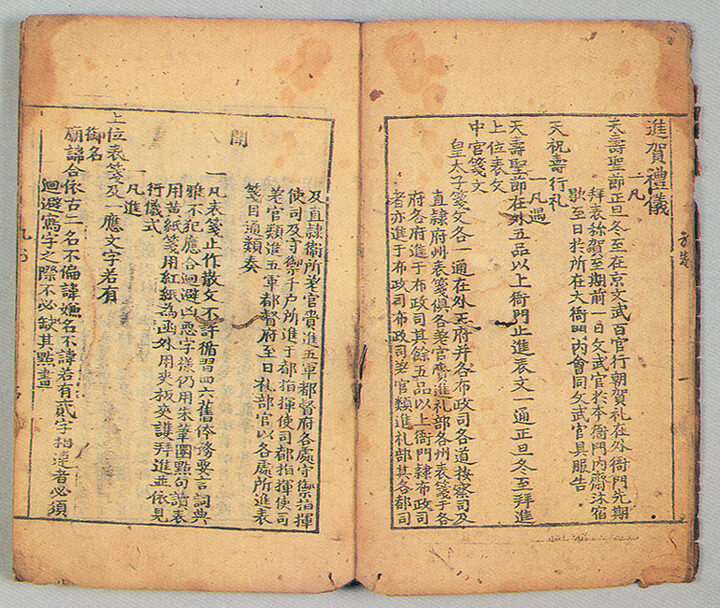 進賀禮儀
一凡
天壽聖節正旦冬至在京文武百官行朝賀礼在外衙門先期
拜表称賀至期前一日文武官於本衙門內齋沐宿
歇至日於所在大衙門內會同文武官具服告
天祝壽行礼
一凡遇
天壽聖節在外五品以上衙門止進表文一通正旦冬至拜進
上位表文
中宮箋文
皇太子箋文各一通在外天府并各布政司各道按察司及
直隸府州表箋俱各差官賫進礼部各州表箋于各
府各府進于布政司其餘五品以上衙門隸布政司
者亦進于布政司布政司差官類進礼部其各都司
及直隸衛所差官賫進五軍都督府各處守禦指揮
使司及守禦千戶所進于都指揮使司都指揮使司
差官類進五軍都督府至日礼部官以各處所進表
箋目通類奏
聞
一凡表箋止作散文不許循習四六舊体務要言詞典
雅不犯應合迴避凶惡字樣仍用朱筆圈點句讀表
用黃紙箋用紅紙為函外用夾板夾護拜進並依見
行儀式
一凡進
上位表箋及一應文字若有
御名
廟諱合依古二名不偏諱嫌名不諱若有貳字相連者必須
迴避寫字之際不必缺其點畫